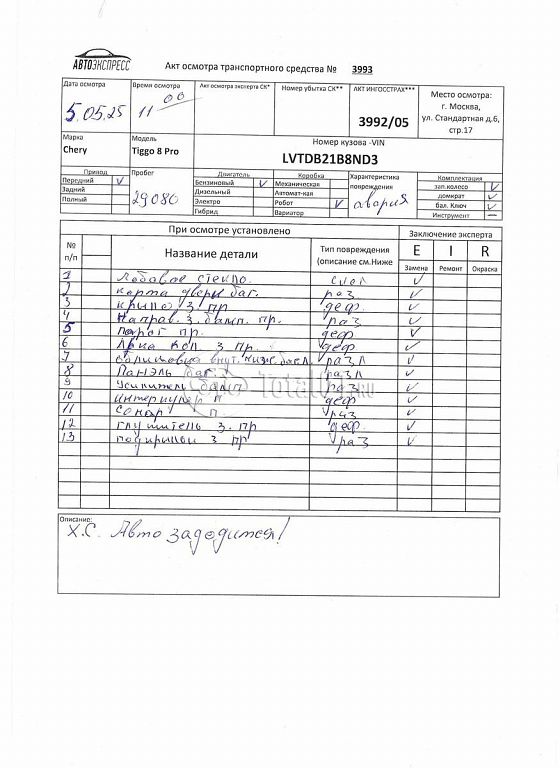 АВТОЭКСПРЕСС
Акт осмотра транспортного средства № 3993
Дата осмотра Время осмотра Акт осмотра эксперта СК* Номер убытка СК** АКТ ИНГОССТРАХ*** Место осмотра:
г. Москва,
ул. Стандартная д.6,
стр.17
5.05.25 11 00 3992/05
Марка Модель Номер кузова -VIN
Chery Tiggo 8 Pro LVTDB21B8ND3
Привод Пробег Двигатель Коробка Характеристика повреждения Комплектация
Передний V Бензиновый V Механическая зап.колесо V
Задний Дизельный Автомат-кая домкрат V
Полный 29080 Электро Робот V авария бал. Ключ V
Гибрид Вариатор Инструмент —
При осмотре установлено Заключение эксперта
№ п/п Название детали Тип повреждения (описание см.Ниже E I R
Замена Ремонт Окраска
1 Лобовое стекло. скол V
2 карта двери баг. раз V
3 крыло з. пр деф V
4 Направ. з. бамп. пр. раз V
5 порог пр. деф V
6 Арка кол. з пр. деф V
7 облицовка внут. ниж. разл V
8 Панэль баг. разл V
9 Усилитель бамп раз V
10 деф V
11 Сонар п раз V
12 глушитель з. пр деф. V
13 з пр раз V
TotalO .RU
Описание:
Х.С. Авто заводится!